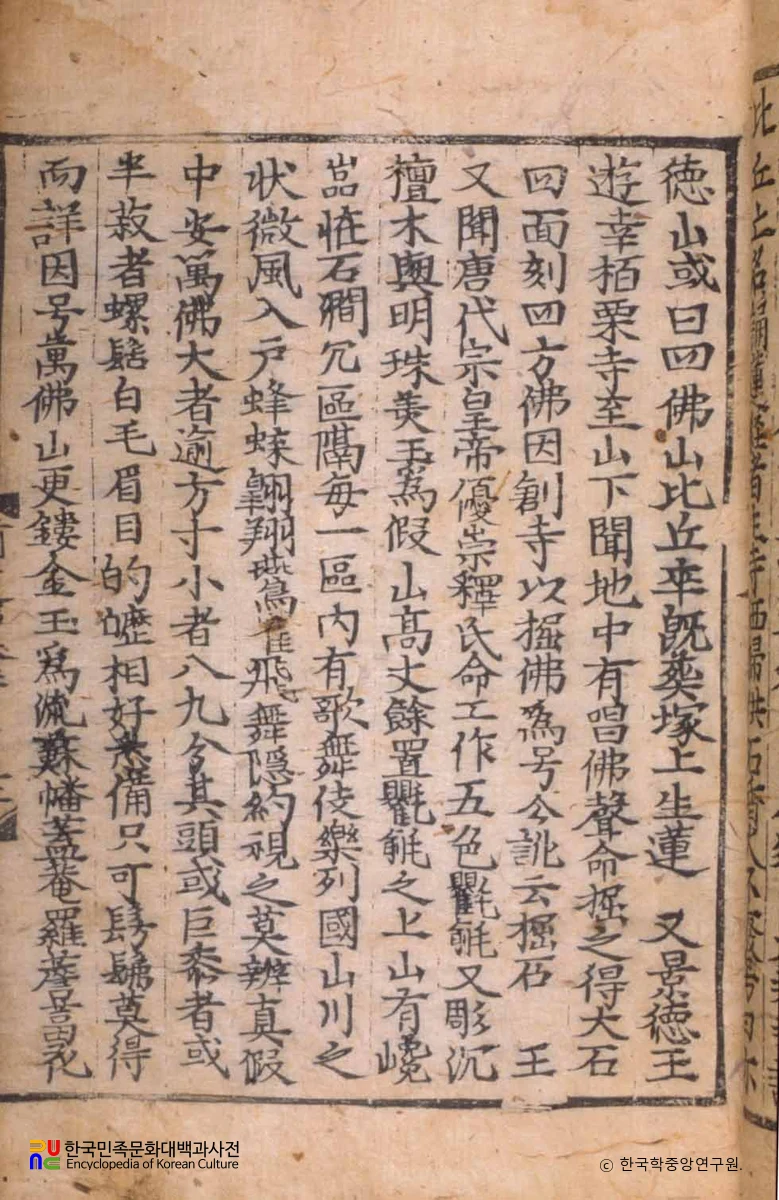 德山或曰四佛山比丘卒旣葬塚上生蓮 又景德王
遊幸栢栗寺至山下聞地中有唱佛聲命掘之得大石
四面刻四方佛因創寺以掘佛爲号今訛云掘石 王
又聞唐代宗皇帝優崇釋氏命工作五色氍毹又彫沉
檀木與明珠美玉爲假山高丈餘置氍毹之上山有巉
嵓怪石澗穴區隔每一區內有歌舞伎樂列國山川之
狀微風入戶蜂蝶翺翔鷰雀飛舞隱約視之莫辨眞假
中安萬佛大者逾方寸小者八九分其頭或巨黍者或
半菽者螺髻白毛眉目的皪相好悉備只可髣髴莫得
而詳因号萬佛山更鏤金玉爲流蘇幡盖菴羅薝葍花
한국민족문화대백과사전
Encyclopedia of Korean Culture
ⓒ 한국학중앙연구원.